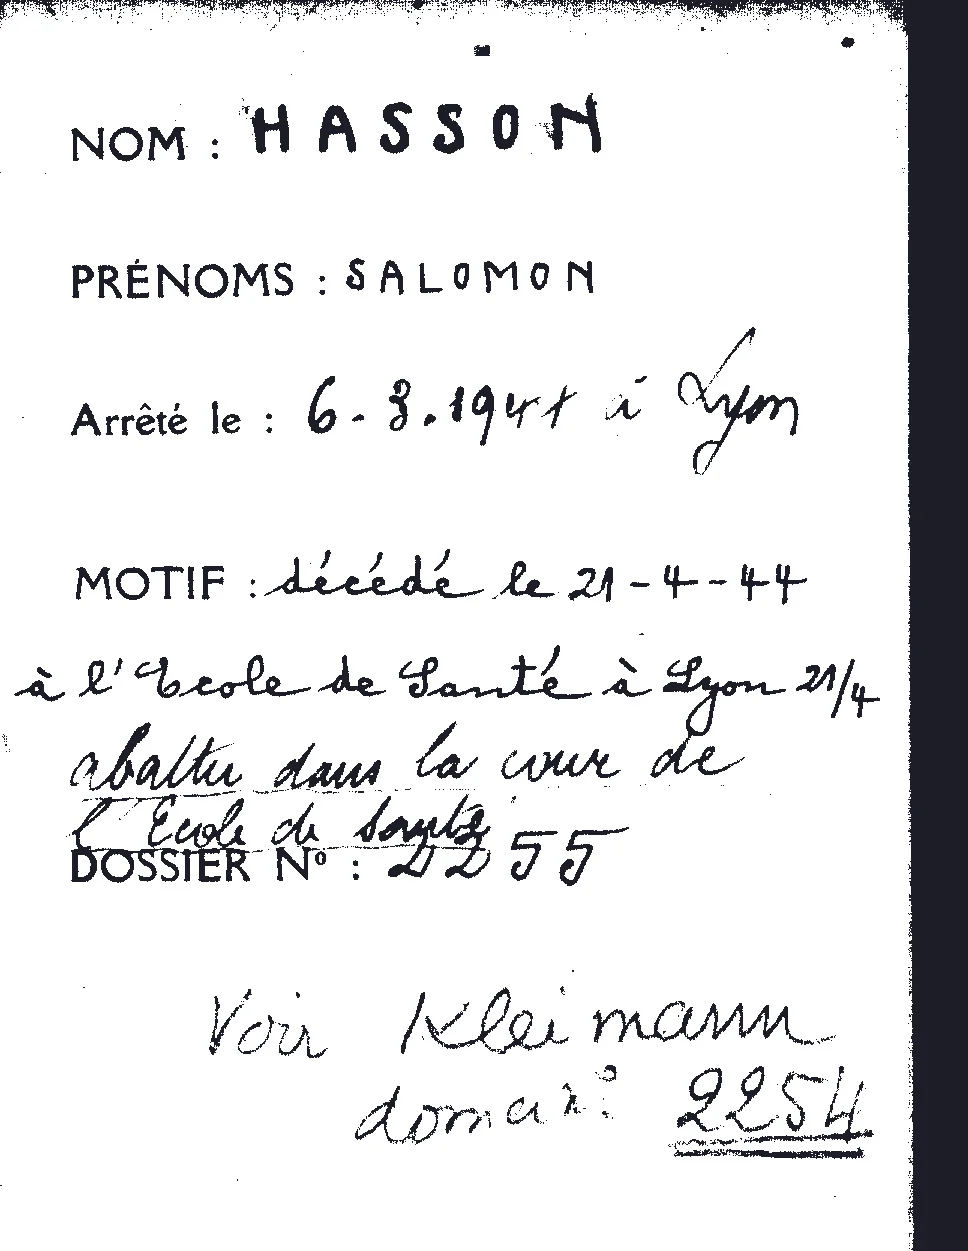 NOM : HASSON
PRÉNOMS : SALOMON
Arrêté le : 6.3.1944 à Lyon
MOTIF : décédé le 21-4-44
à l'Ecole de Santé à Lyon 21/4
abattu dans la cour de
l'Ecole de Santé
DOSSIER Nº : 2255
Voir Kleimann
2254